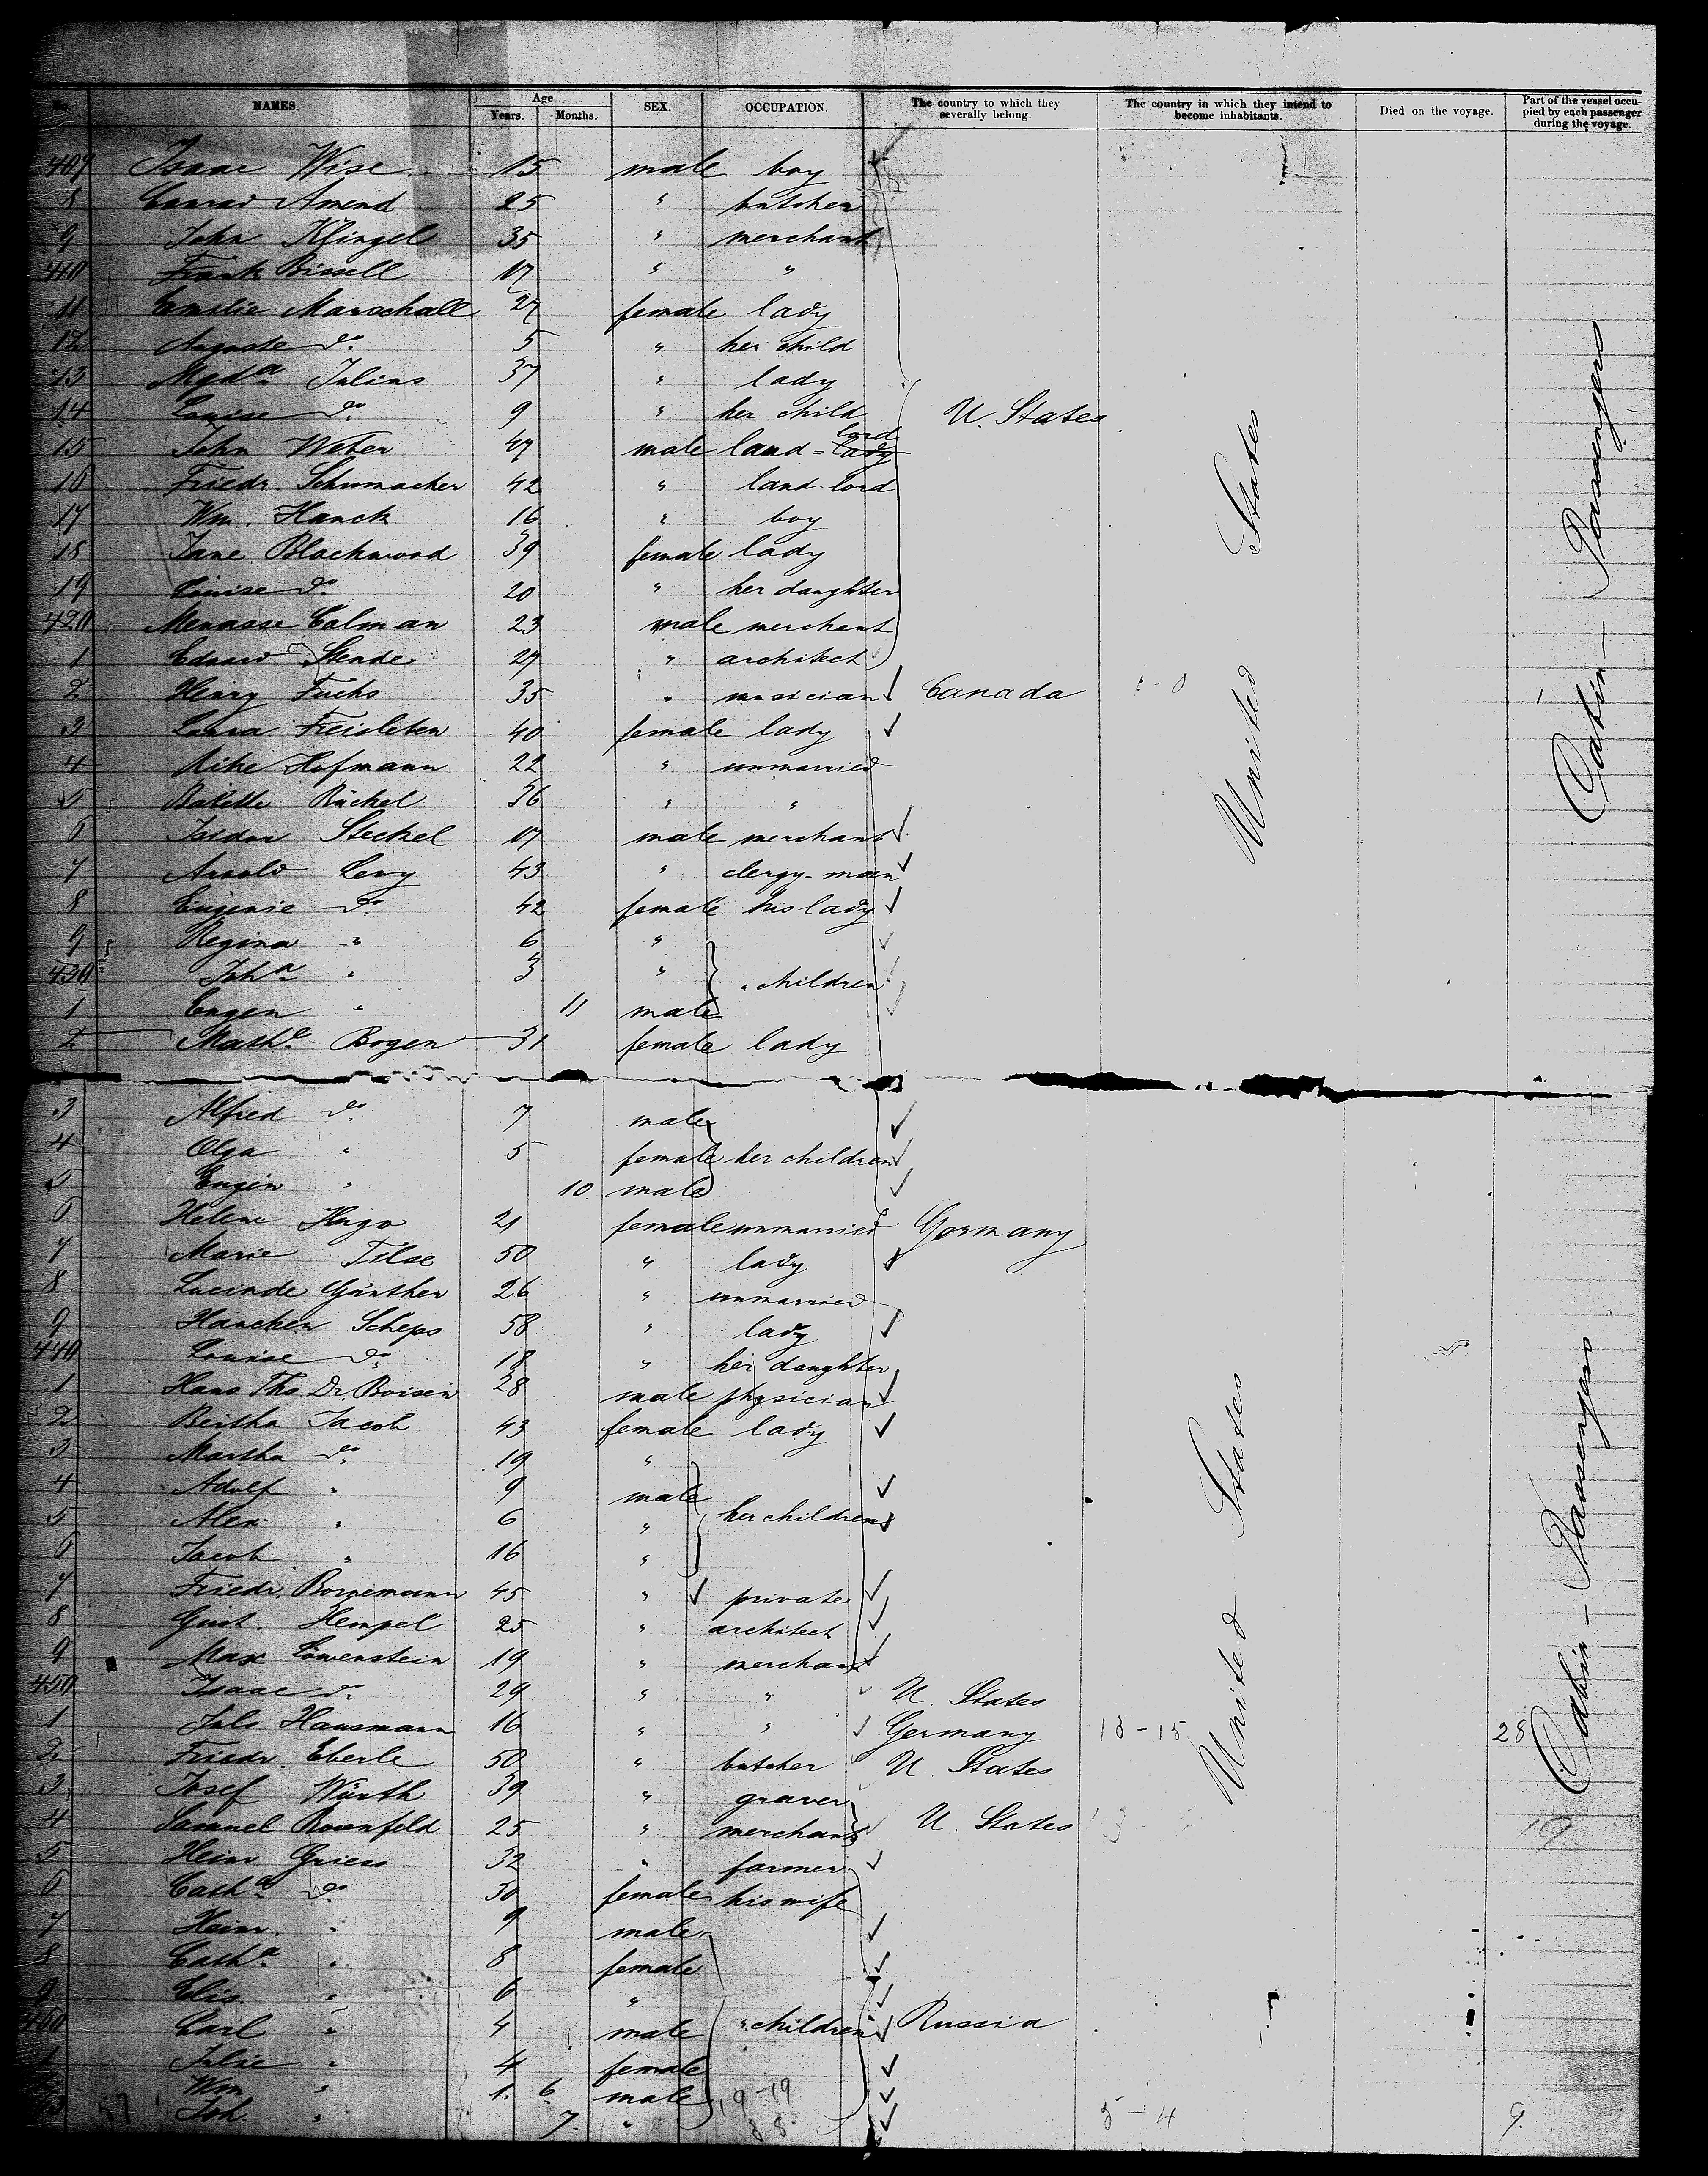 No. NAMES. Age Years. Months. SEX. OCCUPATION. The country to which they severally belong. The country in which they intend to become inhabitants. Died on the voyage. Part of the vessel occupied by each passenger during the voyage.
407 Isaac Wise 15 male boy
8 Conrad Amend 25 " butcher
9 John Klingel 35 " merchant
410 Frank Bissell 17 " "
11 Emilie Marschall 27 female lady
12 Auguste do 5 " her child
13 Magda Julius 37 " lady
14 Louise do 9 " her child U. States
15 John Weber 47 male land = lady lord
16 Friedr. Schumacher 42 " land-lord
17 Wm. Hanck 16 " boy
18 Jane Blackwood 39 female lady
19 Louise do 20 " her daughter
420 Menasse Calman 23 male merchant
1 Eduard Stende 27 " architect
2 Henry Fuchs 35 " musician Canada
3 Laura Freisleben 40 female lady
4 Rike Hofmann 22 " unmarried
5 Babette Rückel 36 " "
6 Isidor Steckel 17 male merchant
7 Arnold Levy 43 " clergy-man
8 Eugenie do 42 female his lady
9 Regina " 6 "
430 Joha " 3 " " children
1 Eugen " 11 male
2 Mathe Bogen 31 female lady
3 Alfred do 7 male
4 Olga " 5 female her children
5 Eugen " 10 male
6 Helene Hugo 21 female unmarried Germany
7 Marie Tilse 50 " lady
8 Lucinde Günther 26 " unmarried
9 Hanchen Scheps 58 " lady
440 Louise do 18 " her daughter
1 Hans Ths. Dr. Boisen 28 male physician
2 Bertha Jacob 43 female lady
3 Martha do 19 "
4 Adolf " 9 male
5 Alex " 6 " her children
6 Jacob " 16 "
7 Friedr. Bornemann 45 " private
8 Gust. Hempel 25 " architect
9 Max Löwenstein 19 " merchant
450 Isaac do 29 " " U. States
1 Juls Hausmann 16 " " Germany 13-15 28
2 Friedr. Eberle 50 " butcher U. States
3 Josef Würth 39 " graver
4 Samuel Rosenfeld 25 " merchant U. States 19
5 Heinr. Griess 32 " farmer
6 Catha do 30 female his wife
7 Heinr. " 9 male
8 Catha " 8 female
9 Elis. " 6 "
460 Carl " 4 male " children Russia
1 Julie " 4 female
2 Wm " 1 6 male
3 Joh. " 7 " 5-4 9.
United States
Cabin - Passengers
United States
Cabin - Passengers